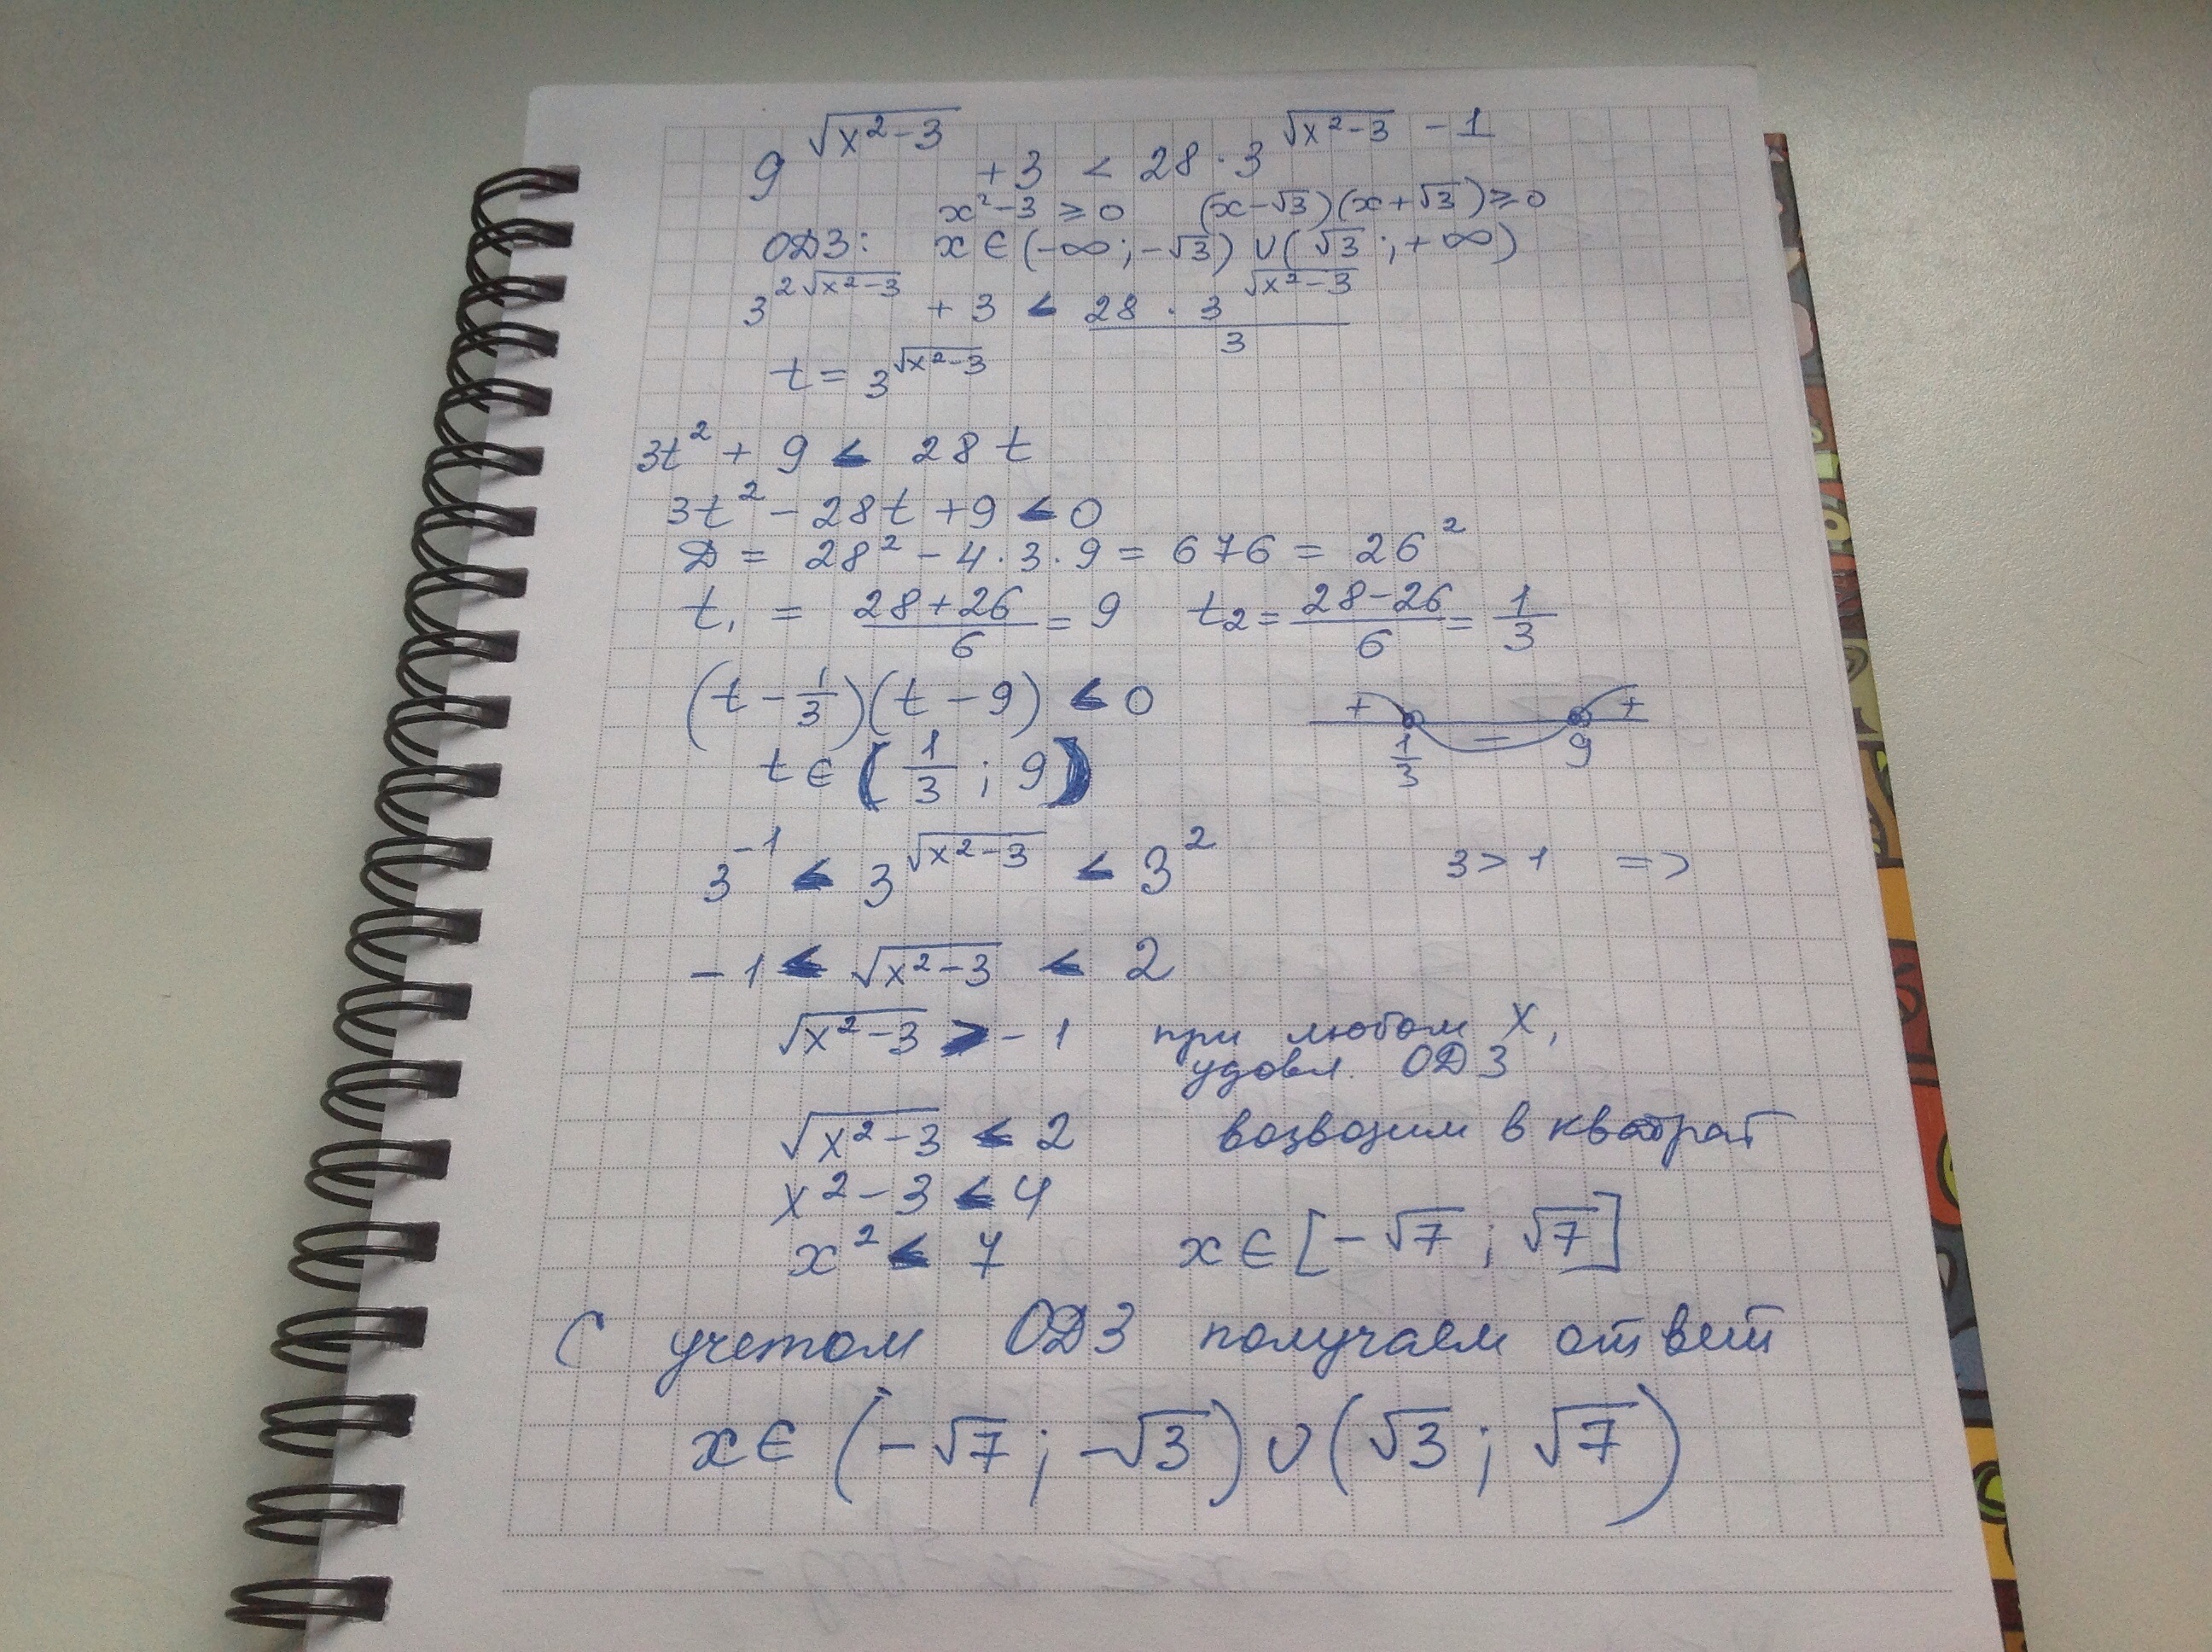 9^{√(x²-3)} + 3 < 28 · 3^{√(x²-3) - 1}
x²-3 ≥ 0 (x-√3)(x+√3) ≥ 0
ОДЗ: x ∈ (-∞; -√3) ∪ (√3; +∞)
3^{2√(x²-3)} + 3 < \frac{28 · 3^{√(x²-3)}}{3}
t = 3^{√(x²-3)}
3t² + 9 < 28t
3t² - 28t + 9 < 0
Д = 28² - 4·3·9 = 676 = 26²
t₁ = \frac{28+26}{6} = 9 t₂ = \frac{28-26}{6} = \frac{1}{3}
(t - \frac{1}{3})(t - 9) < 0 + − +
\frac{1}{3} 9
t ∈ (\frac{1}{3}; 9)
3^{-1} < 3^{√(x²-3)} < 3² 3 > 1 =>
-1 < √(x²-3) < 2
√(x²-3) > -1 при любом x,
удовл. ОДЗ
√(x²-3) < 2 возводим в квадрат
x² - 3 < 4
x² < 7 x ∈ [-√7; √7]
С учетом ОДЗ получаем ответ
x ∈ (-√7; -√3) ∪ (√3; √7)